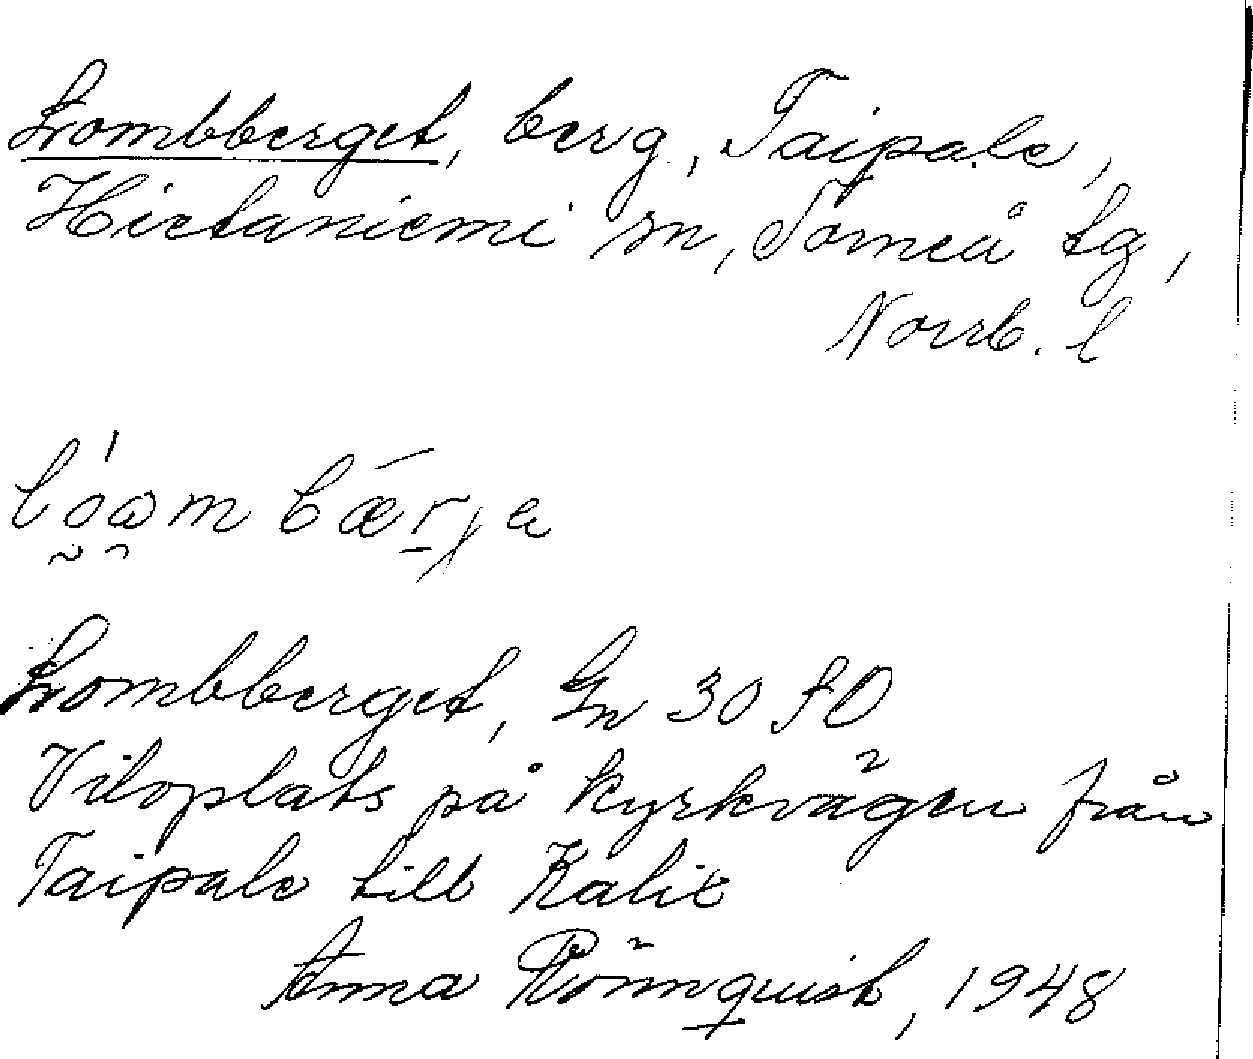 Lombberget, berg, Taipale,
Hietaniemi sn, Torneå tg,
Norrb. l
Lombberget, Gn 30 SO
Viloplats på kyrkvägen från
Taipale till Kalix
Anna Rönnquist, 1948